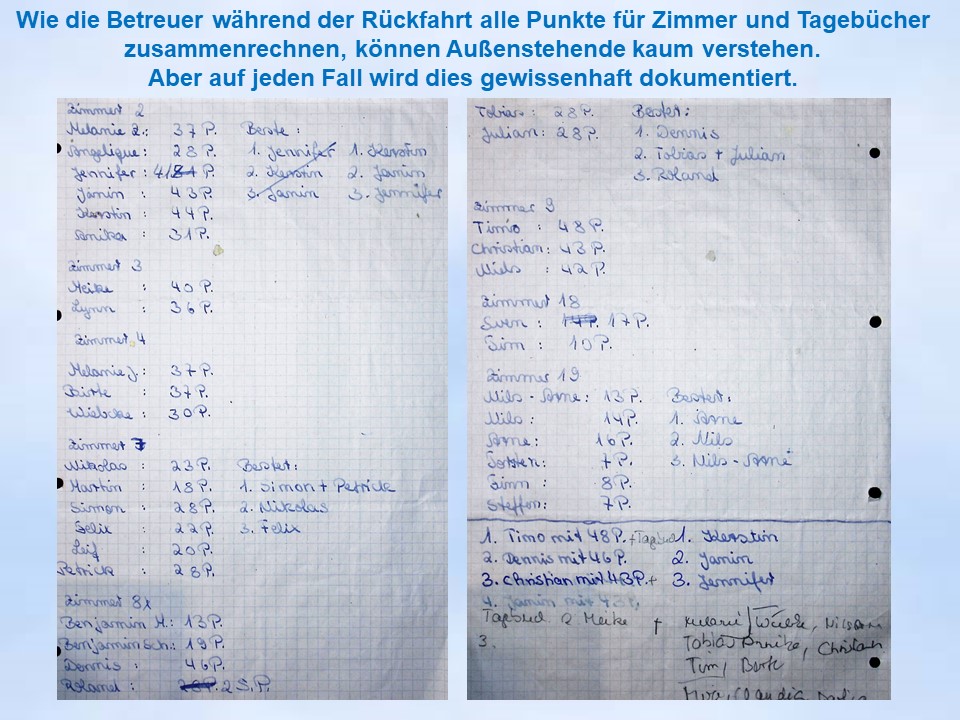 Wie die Betreuer während der Rückfahrt alle Punkte für Zimmer und Tagebücher
zusammenrechnen, können Außenstehende kaum verstehen.
Aber auf jeden Fall wird dies gewissenhaft dokumentiert.
Zimmer 2
Melanie 2.: 37 P. Beste:
Angelique: 28 P. 1. Jennifer 1. Kerstin
Jennifer: 41 P. 2. Kerstin 2. Janin
Janin: 43 P. 3. Janin 3. Jennifer
Kerstin: 44 P.
Anika: 31 P.
Zimmer 3
Meike: 40 P.
Lynn: 36 P.
Zimmer 4
Melanie J.: 37 P.
Birte: 37 P.
Wiebcke: 30 P.
Zimmer 7
Nikolas: 23 P. Bester:
Martin: 18 P. 1. Simon + Patrick
Simon: 28 P. 2. Nikolas
Felix: 22 P. 3. Felix
Leif: 20 P.
Patrick: 28 P.
Zimmer 8x
Benjamin H.: 13 P.
Benjamin Sch.: 19 P.
Dennis: 46 P.
Roland: 25 P.
Tobias: 28 P. Bester:
Julian: 28 P. 1. Dennis
2. Tobias + Julian
3. Roland
Zimmer 9
Timo: 48 P.
Christian: 43 P.
Niels: 42 P.
Zimmer 18
Sven: 17 P.
10 P.
Zimmer 19
Nils-Arne: 13 P. Bester:
Nils: 14 P. 1. Arne
Arne: 16 P. 2. Nils
Torsten: 7 P. 3. Nils-Arne
Finn: 8 P.
Steffen: 7 P.
1. Timo mit 48 P. + 1. Kerstin
2. Dennis mit 46 P. 2. Janin
3. Christian mit 43 P. + 3. Jennifer
4. Janin mit 43 P.
Meike + Melanie
3. Tobias Annika, Christian
Tim, Birte
Claudia